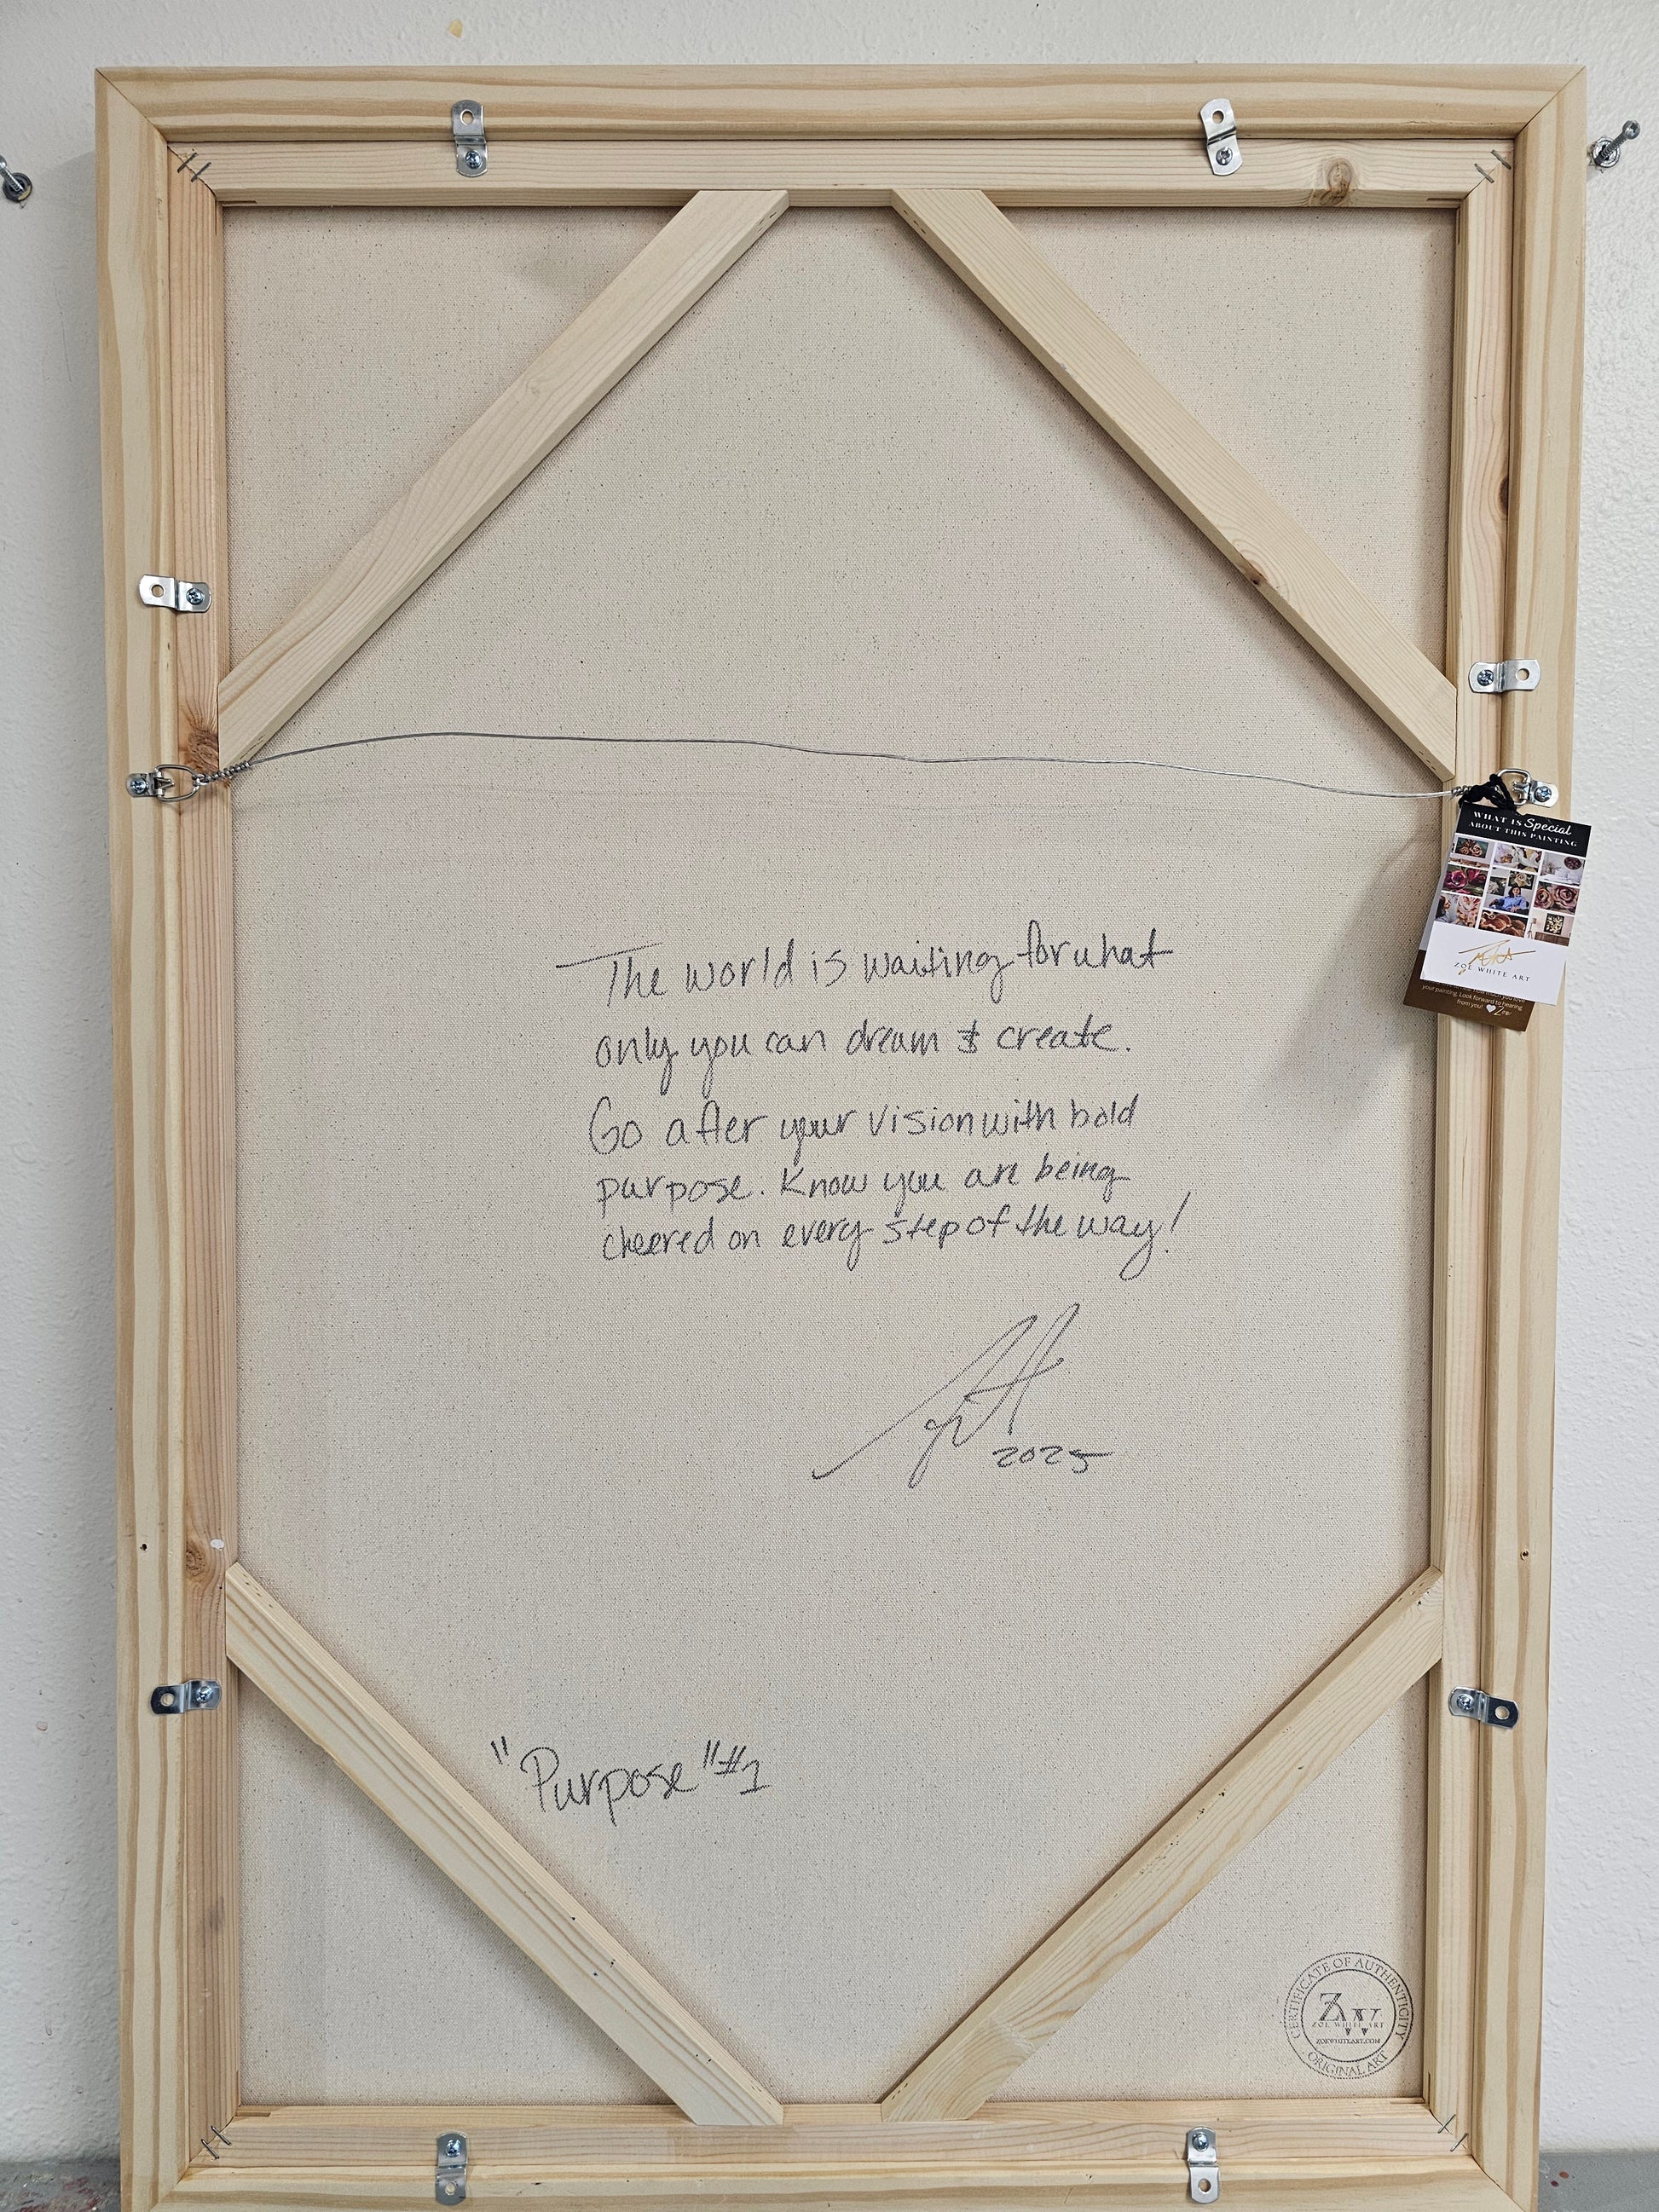 WHAT IS Special
ABOUT THIS PAINTING
ZOË WHITE ART
your painting. Look forward to hearing
from you!
The world is waiting for what
only you can dream & create.
Go after your vision with bold
purpose. Know you are being
cheered on every step of the way!
2025
"Purpose" #1
CERTIFICATE OF AUTHENTICITY
ZW
ZOË WHITE ART
ZOEWHITEART.COM
ORIGINAL ART